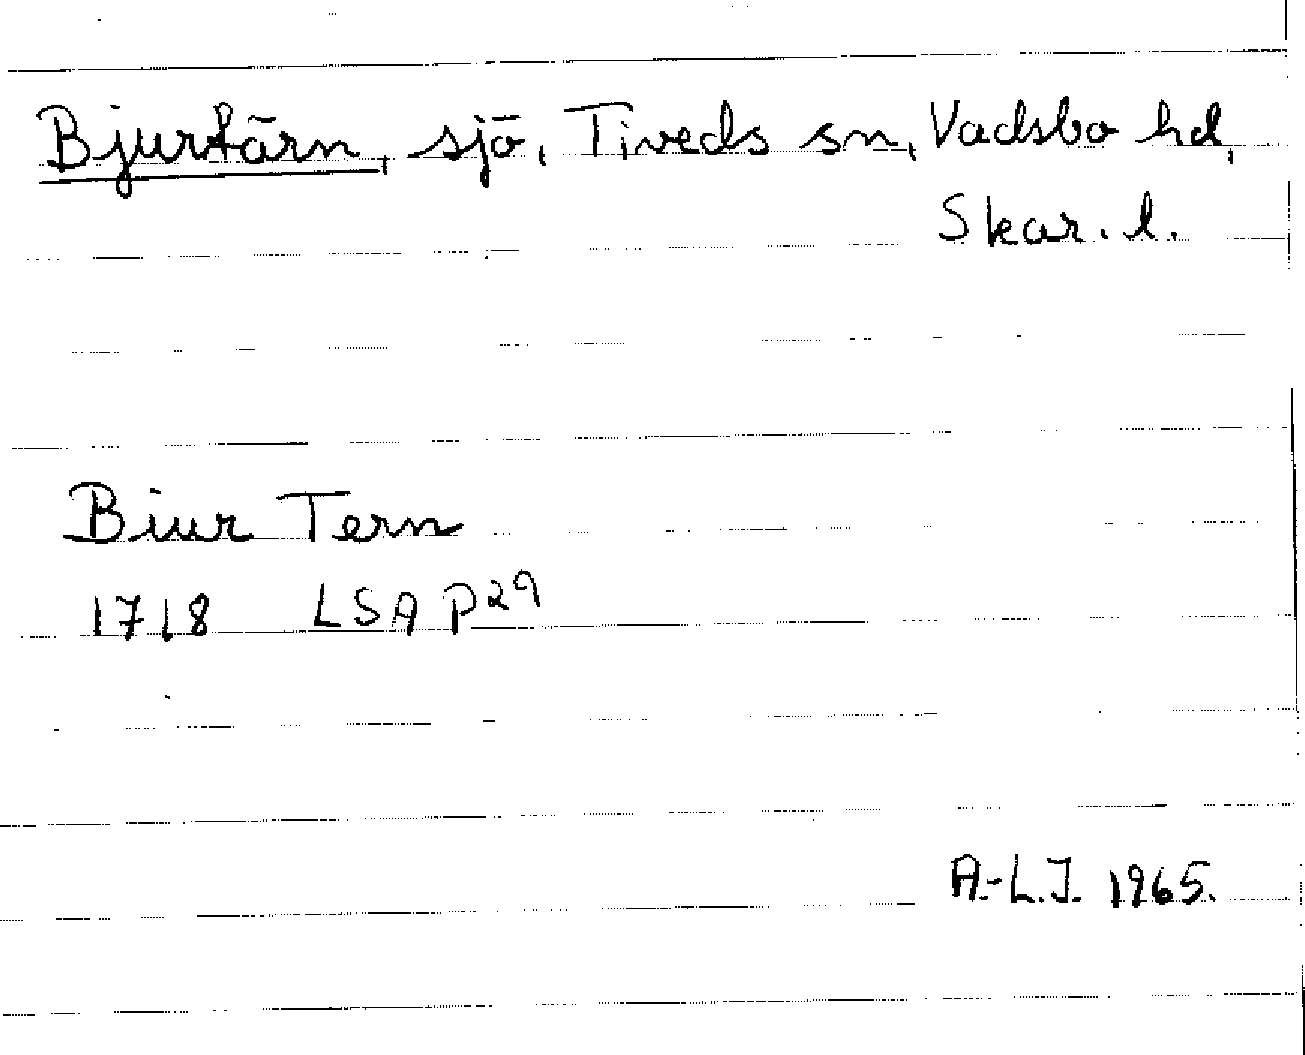 Bjurtärn, sjö, Tiveds sn, Vadsbo hd,
Skar. l.
Biur Tern
1718 LSA P29
A.-L.J. 1965.